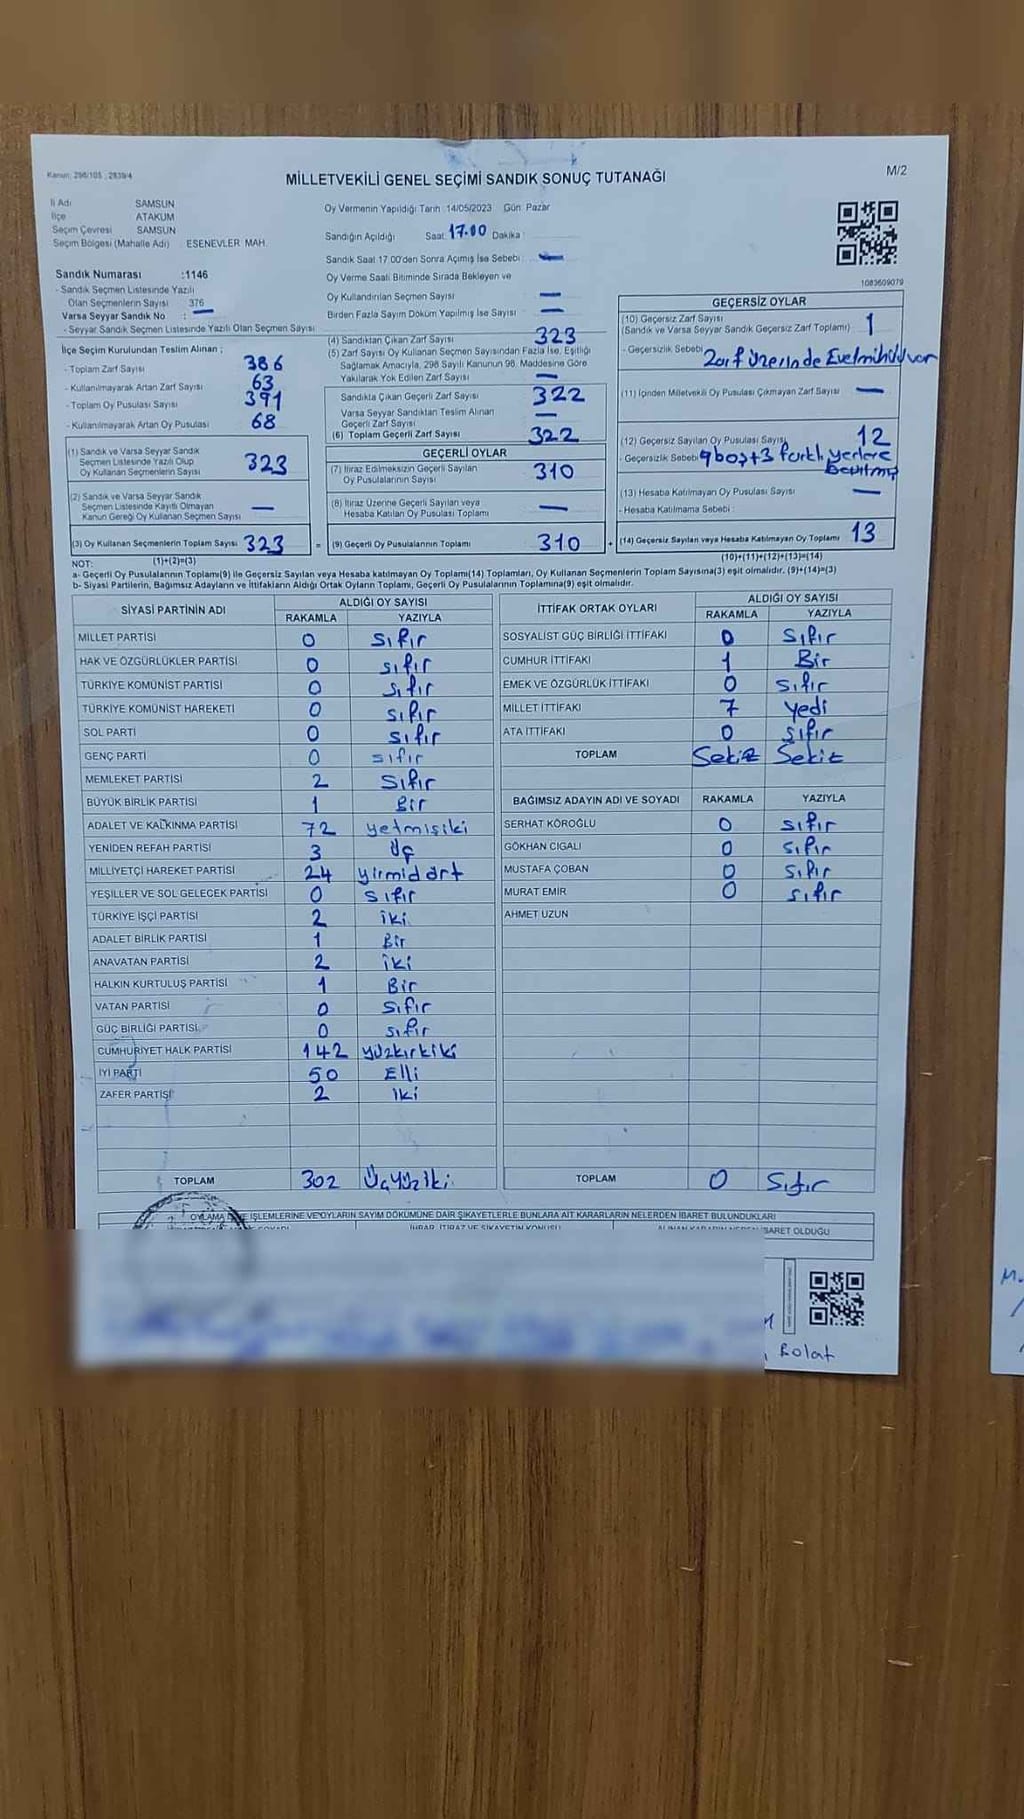 Kanun: 298/105 , 2839/4
MİLLETVEKİLİ GENEL SEÇİMİ SANDIK SONUÇ TUTANAĞI
M/2
İl Adı SAMSUN
İlçe ATAKUM
Seçim Çevresi SAMSUN
Seçim Bölgesi (Mahalle Adı) ESENEVLER MAH.
Sandık Numarası :1146
- Sandık Seçmen Listesinde Yazılı
Olan Seçmenlerin Sayısı 376
Varsa Seyyar Sandık No : —
- Seyyar Sandık Seçmen Listesinde Yazılı Olan Seçmen Sayısı
Oy Vermenin Yapıldığı Tarih :14/05/2023 Gün: Pazar
Sandığın Açıldığı Saat: 17.00 Dakika :
Sandık Saat 17.00'den Sonra Açımış İse Sebebi : —
Oy Verme Saati Bitiminde Sırada Bekleyen ve
Oy Kullandırılan Seçmen Sayısı —
Birden Fazla Sayım Döküm Yapılmış İse Sayısı —
1083609079
İlçe Seçim Kurulundan Teslim Alınan ;
- Toplam Zarf Sayısı 386
- Kullanılmayarak Artan Zarf Sayısı 63
- Toplam Oy Pusulası Sayısı 391
- Kullanılmayarak Artan Oy Pusulası 68
(1) Sandık ve Varsa Seyyar Sandık
Seçmen Listesinde Yazılı Olup
Oy Kullanan Seçmenlerin Sayısı 323
(2) Sandık ve Varsa Seyyar Sandık
Seçmen Listesinde Kayıtlı Olmayan
Kanun Gereği Oy Kullanan Seçmen Sayısı —
(3) Oy Kullanan Seçmenlerin Toplam Sayısı 323
(1)+(2)=(3)
(4) Sandıktan Çıkan Zarf Sayısı 323
(5) Zarf Sayısı Oy Kullanan Seçmen Sayısından Fazla İse, Eşitliği
Sağlamak Amacıyla, 298 Sayılı Kanunun 98. Maddesine Göre
Yakılarak Yok Edilen Zarf Sayısı —
Sandıkta Çıkan Geçerli Zarf Sayısı 322
Varsa Seyyar Sandıktan Teslim Alınan
Geçerli Zarf Sayısı —
(6) Toplam Geçerli Zarf Sayısı 322
GEÇERLİ OYLAR
(7) İtiraz Edilmeksizin Geçerli Sayılan
Oy Pusulalarının Sayısı 310
(8) İtiraz Üzerine Geçerli Sayılan veya
Hesaba Katılan Oy Pusulası Toplamı —
= (9) Geçerli Oy Pusulalarının Toplamı 310
GEÇERSİZ OYLAR
(10) Geçersiz Zarf Sayısı
(Sandık ve Varsa Seyyar Sandık Geçersiz Zarf Toplamı) 1
- Geçersizlik Sebebi Zarf üzerinde
(11) İçinden Milletvekili Oy Pusulası Çıkmayan Zarf Sayısı —
(12) Geçersiz Sayılan Oy Pusulası Sayısı 12
- Geçersizlik Sebebi 9 boş+3 farklı yerlere
basılmış
(13) Hesaba Katılmayan Oy Pusulası Sayısı —
- Hesaba Katılmama Sebebi :
+ (14) Geçersiz Sayılan veya Hesaba Katılmayan Oy Toplamı 13
(10)+(11)+(12)+(13)=(14)
NOT:
a- Geçerli Oy Pusulalarının Toplamı(9) ile Geçersiz Sayılan veya Hesaba katılmayan Oy Toplamı(14) Toplamları, Oy Kullanan Seçmenlerin Toplam Sayısına(3) eşit olmalıdır. (9)+(14)=(3)
b- Siyasi Partilerin, Bağımsız Adayların ve İttifakların Aldığı Ortak Oyların Toplamı, Geçerli Oy Pusulalarının Toplamına(9) eşit olmalıdır.
SİYASİ PARTİNİN ADI ALDIĞI OY SAYISI
RAKAMLA YAZIYLA
MİLLET PARTİSİ 0 sıfır
HAK VE ÖZGÜRLÜKLER PARTİSİ 0 sıfır
TÜRKİYE KOMÜNİST PARTİSİ 0 sıfır
TÜRKİYE KOMÜNİST HAREKETİ 0 sıfır
SOL PARTİ 0 sıfır
GENÇ PARTİ 0 sıfır
MEMLEKET PARTİSİ 2 sıfır
BÜYÜK BİRLİK PARTİSİ 1 Bir
ADALET VE KALKINMA PARTİSİ 72 yetmişiki
YENİDEN REFAH PARTİSİ 3 Üç
MİLLİYETÇİ HAREKET PARTİSİ 24 yirmidört
YEŞİLLER VE SOL GELECEK PARTİSİ 0 sıfır
TÜRKİYE İŞÇİ PARTİSİ 2 iki
ADALET BİRLİK PARTİSİ 1 Bir
ANAVATAN PARTİSİ 2 iki
HALKIN KURTULUŞ PARTİSİ 1 Bir
VATAN PARTİSİ 0 sıfır
GÜÇ BİRLİĞİ PARTİSİ 0 sıfır
CUMHURİYET HALK PARTİSİ 142 yüzkırkiki
İYİ PARTİ 50 Elli
ZAFER PARTİSİ 2 iki
TOPLAM 302 Üçyüziki
İTTİFAK ORTAK OYLARI ALDIĞI OY SAYISI
RAKAMLA YAZIYLA
SOSYALİST GÜÇ BİRLİĞİ İTTİFAKI 0 sıfır
CUMHUR İTTİFAKI 1 Bir
EMEK VE ÖZGÜRLÜK İTTİFAKI 0 sıfır
MİLLET İTTİFAKI 7 yedi
ATA İTTİFAKI 0 sıfır
TOPLAM Sekiz Sekiz
BAĞIMSIZ ADAYIN ADI VE SOYADI RAKAMLA YAZIYLA
SERHAT KÖROĞLU 0 sıfır
GÖKHAN CIGALI 0 sıfır
MUSTAFA ÇOBAN 0 sıfır
MURAT EMİR 0 sıfır
AHMET UZUN
TOPLAM 0 Sıfır
OYLAMA İŞLEMLERİNE VE OYLARIN SAYIM DÖKÜMÜNE DAİR ŞİKAYETLERLE BUNLARA AİT KARARLARIN NELERDEN İBARET BULUNDUKLARI
İHBAR, İTİRAZ VE ŞİKAYETİN KONUSU İBARET OLDUĞU
Bolat